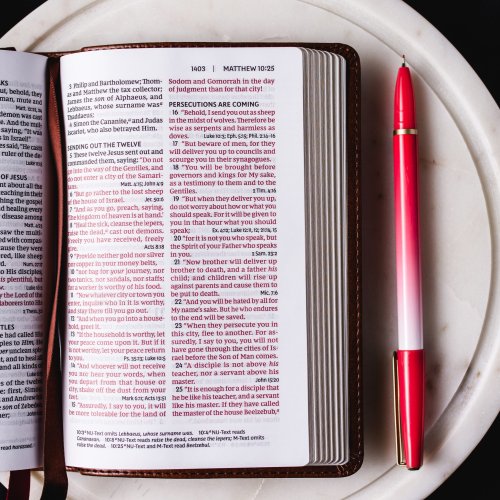 AKS
out, behold, they
man, mute and
was
the mute
saying, "It was
in Israel!"
said, "He casts
ruler of the
OF JESUS
about all the
teaching in their
the gospel
and healing every
disease among
saw the multi-
ed with compas-
cause they were
red, like sheep
to His disciples,
is plentiful, but
the Lord of the
laborers into His
TLES
e had called His
to Him, He
over unclean
out, and to heal
and all kinds of
of the twelve
these: first, Simon
and Andrew
son of Zebedee,
1403 | MATTHEW 10:25
3 Philip and Bartholomew; Thom-
as and Matthew the tax collector;
James the son of Alphaeus, and
Lebbaeus, whose surname was*
Thaddaeus;
4 Simon the Cananite,* and Judas
Iscariot, who also betrayed Him.
SENDING OUT THE TWELVE
5 These twelve Jesus sent out and
commanded them, saying: "Do not
go into the way of the Gentiles, and
do not enter a city of the Samari-
tans. Matt. 4:15; John 4:9
6 "But go rather to the lost sheep
of the house of Israel. Jer. 50:6
7 "And as you go, preach, saying,
'The kingdom of heaven is at hand.'
8 "Heal the sick, cleanse the lepers,
raise the dead,* cast out demons.
Freely you have received, freely
give. Acts 8:18
9 "Provide neither gold nor silver
nor copper in your money belts,
10 "nor bag for your journey, nor
two tunics, nor sandals, nor staffs;
for a worker is worthy of his food.
11 "Now whatever city or town you
enter, inquire who in it is worthy,
and stay there till you go out.
12 "And when you go into a house-
hold, greet it.
13 "If the household is worthy, let
your peace come upon it. But if it
is not worthy, let your peace return
to you. Ps. 35:13; Luke 10:5
14 "And whoever will not receive
you nor hear your words, when
you depart from that house or
city, shake off the dust from your
feet. Mark 6:11; Acts 13:51
15 "Assuredly, I say to you, it will
be more tolerable for the land of
Sodom and Gomorrah in the day
of judgment than for that city!
PERSECUTIONS ARE COMING
16 "Behold, I send you out as sheep
in the midst of wolves. Therefore be
wise as serpents and harmless as
doves. Luke 10:3; Eph. 5:15; Phil. 2:14–16
17 "But beware of men, for they
will deliver you up to councils and
scourge you in their synagogues.
18 "You will be brought before
governors and kings for My sake,
as a testimony to them and to the
Gentiles. 2 Tim. 4:16
19 "But when they deliver you up,
do not worry about how or what you
should speak. For it will be given to
you in that hour what you should
speak; Ex. 4:12; Luke 12:11, 12; 21:14, 15
20 "for it is not you who speak, but
the Spirit of your Father who speaks
in you. 2 Sam. 23:2
21 "Now brother will deliver up
brother to death, and a father his
child; and children will rise up
against parents and cause them to
be put to death. Mic. 7:6
22 "And you will be hated by all for
My name's sake. But he who endures
to the end will be saved.
23 "When they persecute you in
this city, flee to another. For as-
suredly, I say to you, you will not
have gone through the cities of Is-
rael before the Son of Man comes.
24 "A disciple is not above his
teacher, nor a servant above his
master. John 15:20
25 "It is enough for a disciple that
he be like his teacher, and a servant
like his master. If they have called
the master of the house Beelzebub,*
10:3 NU-Text omits Lebbaeus, whose surname was. 10:4 NU-Text reads
Cananaean. 10:8 NU-Text reads raise the dead, cleanse the lepers; M-Text omits
raise the dead. 10:25 NU-Text and M-Text read Beelzebul.